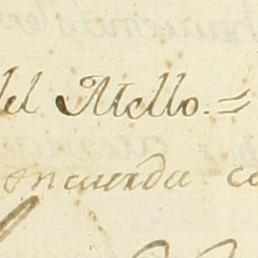 del Mello. =
oncuerda co